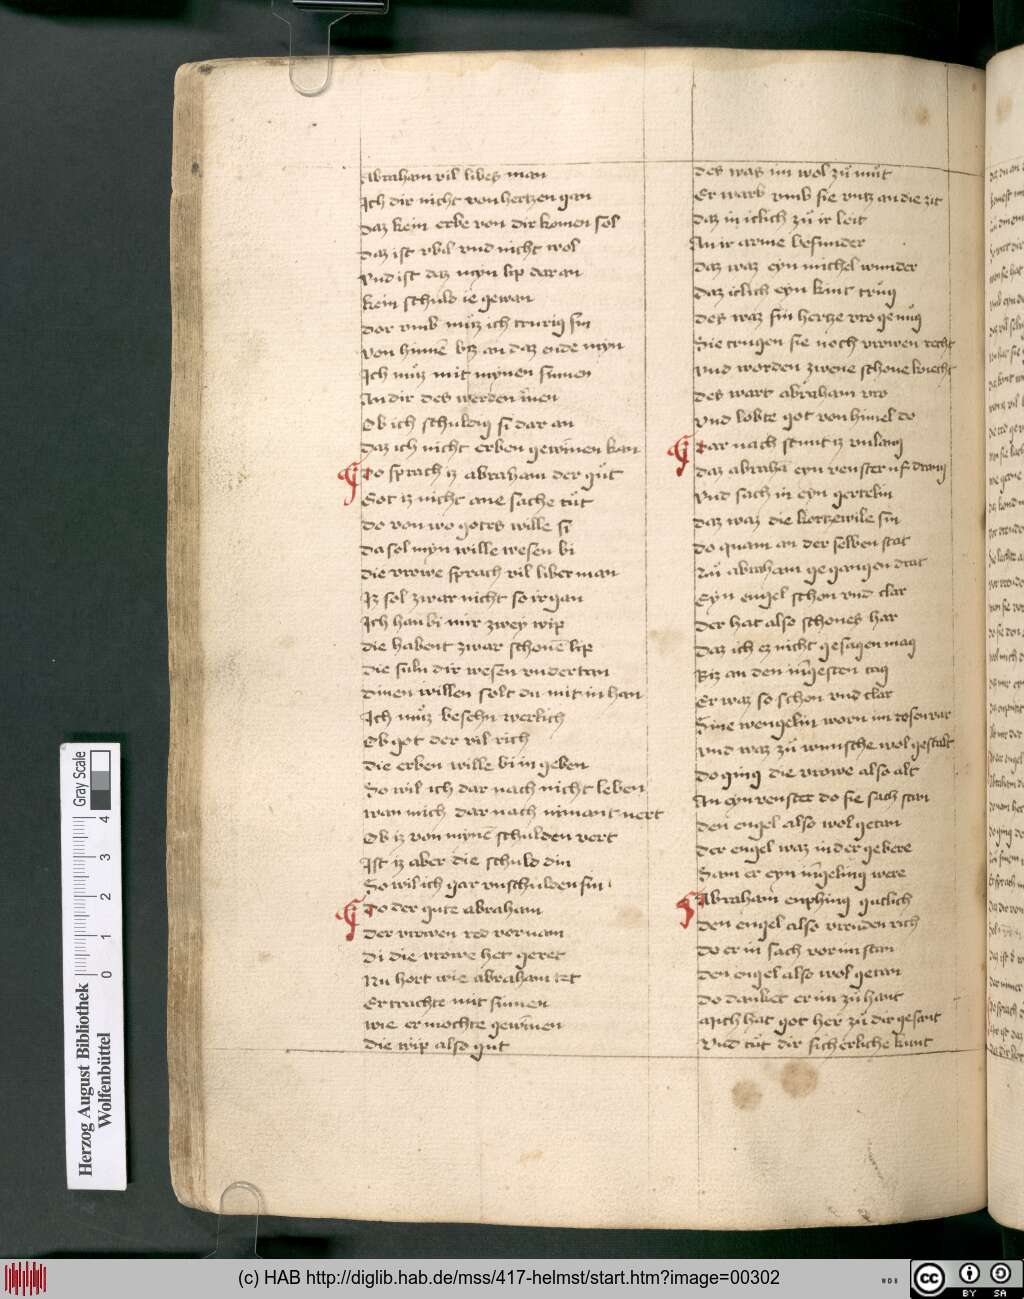 Abraham vil libes man
Ich dir nicht von hertzen gan
Daz kein erbe von dir komen sol
Daz ist vbil vnd nicht wol
Vnd ist daz myn lip dar an
Kein schuld ie gewan
Dor vmb muͦz ich trurig sin
Von hinnē biz an daz ende myn
Ich muͦz mit mynen sinnen
An dir des werden īnen
Ob ich schuldig si dar an
Daz ich nicht erben gewīnen kan
Do sprach iz abraham der guͦt
Got iz nicht ane sache tuͦt
Do von wo gotes wille si
Da sol myn wille wesen bi
Die vrowe sprach vil liber man
Iz sol zwar nicht so irgan
Ich han bi mir zwey wip
Die habent zwar schonē lip
Die suln dir wesen vndertan
Dinen willen solt du mit in han
Ich muͦz besehn werlich
Ob got der vil rich
Die erben wille bi in geben
So wil ich dar nach nicht leben
Wan mich dar nach nimant nert
Ob iz von mynē schulden vert
Ist iz aber die schuld din
So wil ich gar vnschulden sin
Do der gute abraham
Der vrowen red vornam
Di die vrowe het geret
Nu hort wie abraham tet
Er trachte mit sinnen
Wie er mochte gewīnen
Die wip also gut
Des was im wol zuͦ muͦt
Er warb vmb sie vntz an die zit
Daz in iclich zuͦ ir leit
An ir arme besunder
Daz waz eyn michel wunder
Daz iclich eyn kint truͦg
Des waz sin hertze vro genuͦg
Sie trugen sie noch vrowen recht
Vnd worden zwene schone knecht
Des wart abraham vro
Vnd lobte got von himel do
Dar nach stunt iz vnlang
Daz abrahā eyn venster uf drang
Vnd sach in eyn gertelin
Daz waz die kortzewile sin
Do quam an der selben stat
Zuͦ abraham gegangen drat
Eyn engel schon vnd clar
Der hat also schones har
Daz ich ez nicht gesagen mag
Biz an den iūgesten tag
Er waz so schon vnd clar
Sine wengelin worn im rosenvar
Vnd waz zuͦ wunsche wol gestalt
Do ging die vrowe also alt
An eyn venster do sie sach stan
Den engel also wol getan
Der engel waz in der gebere
Sam er eyn iūgeling were
Abraham enphing gutlich
Den engel also vreuden rich
Do er in sach vor im stan
Den engel also wol getan
Do danket er im zuͦ hant
Mich hat got her zuͦ dir gesant
Vnd tuͦt dir sicherliche kunt
Gray Scale
0 1 2 3 4
Herzog August Bibliothek
Wolfenbüttel
(c) HAB http://diglib.hab.de/mss/417-helmst/start.htm?image=00302
WDB
cc BY SA